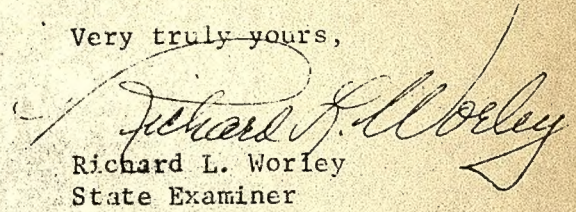 Very truly yours,
Richard L. Worley
Richard L. Worley
State Examiner